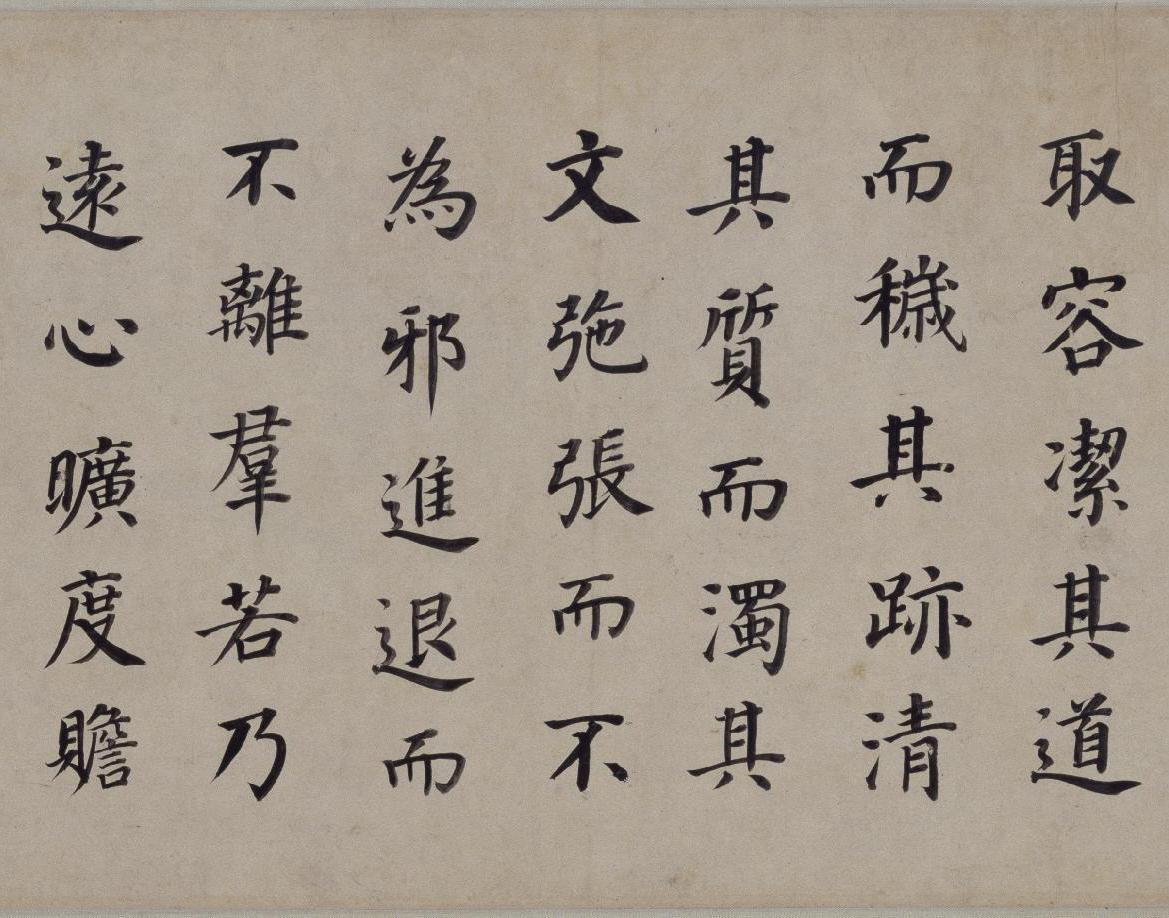 取容潔其道
而穢其跡清
其質而濁其
文弛張而不
為邪進退而
不離羣若乃
遠心曠度贍